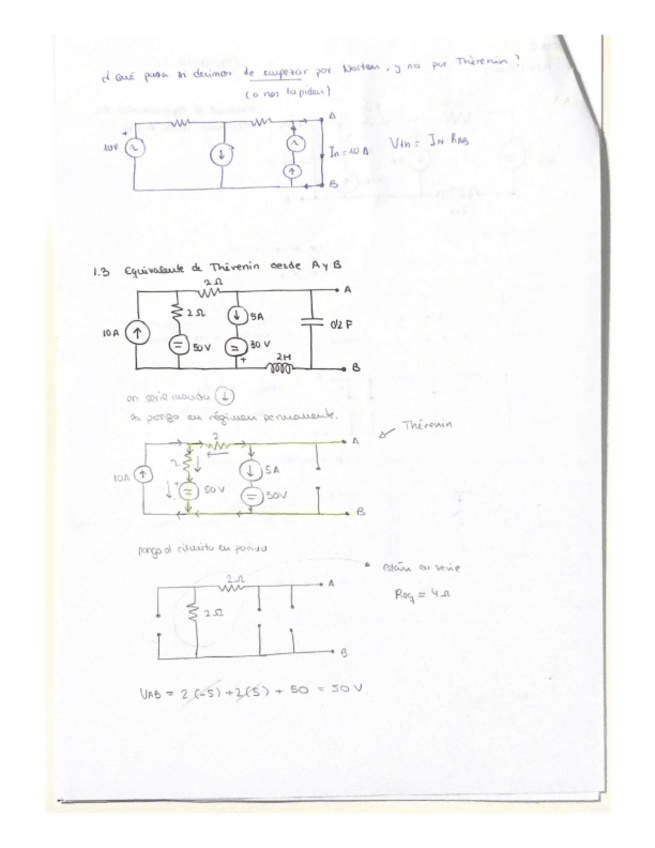 ¿ Qué pasa si decimos de empezar por Norton, y no por Thévenin ?
(o nos lo piden)
A
10V
In = 10 A
Vth = IN RAB
B
1.3 Equivalente de Thévenin desde A y B
2Ω
A
2Ω
5A
10A
0'2 F
50V
30 V
+
2H
B
en serie manda ↓
lo pongo en régimen permanente.
Thévenin
2
A
2
5A
10A
+
50V
30V
B
pongo el circuito en pasivo
están en serie
2Ω
A
Req = 4Ω
2Ω
B
UAB = 2(-5) + 2(5) + 50 = 50 V